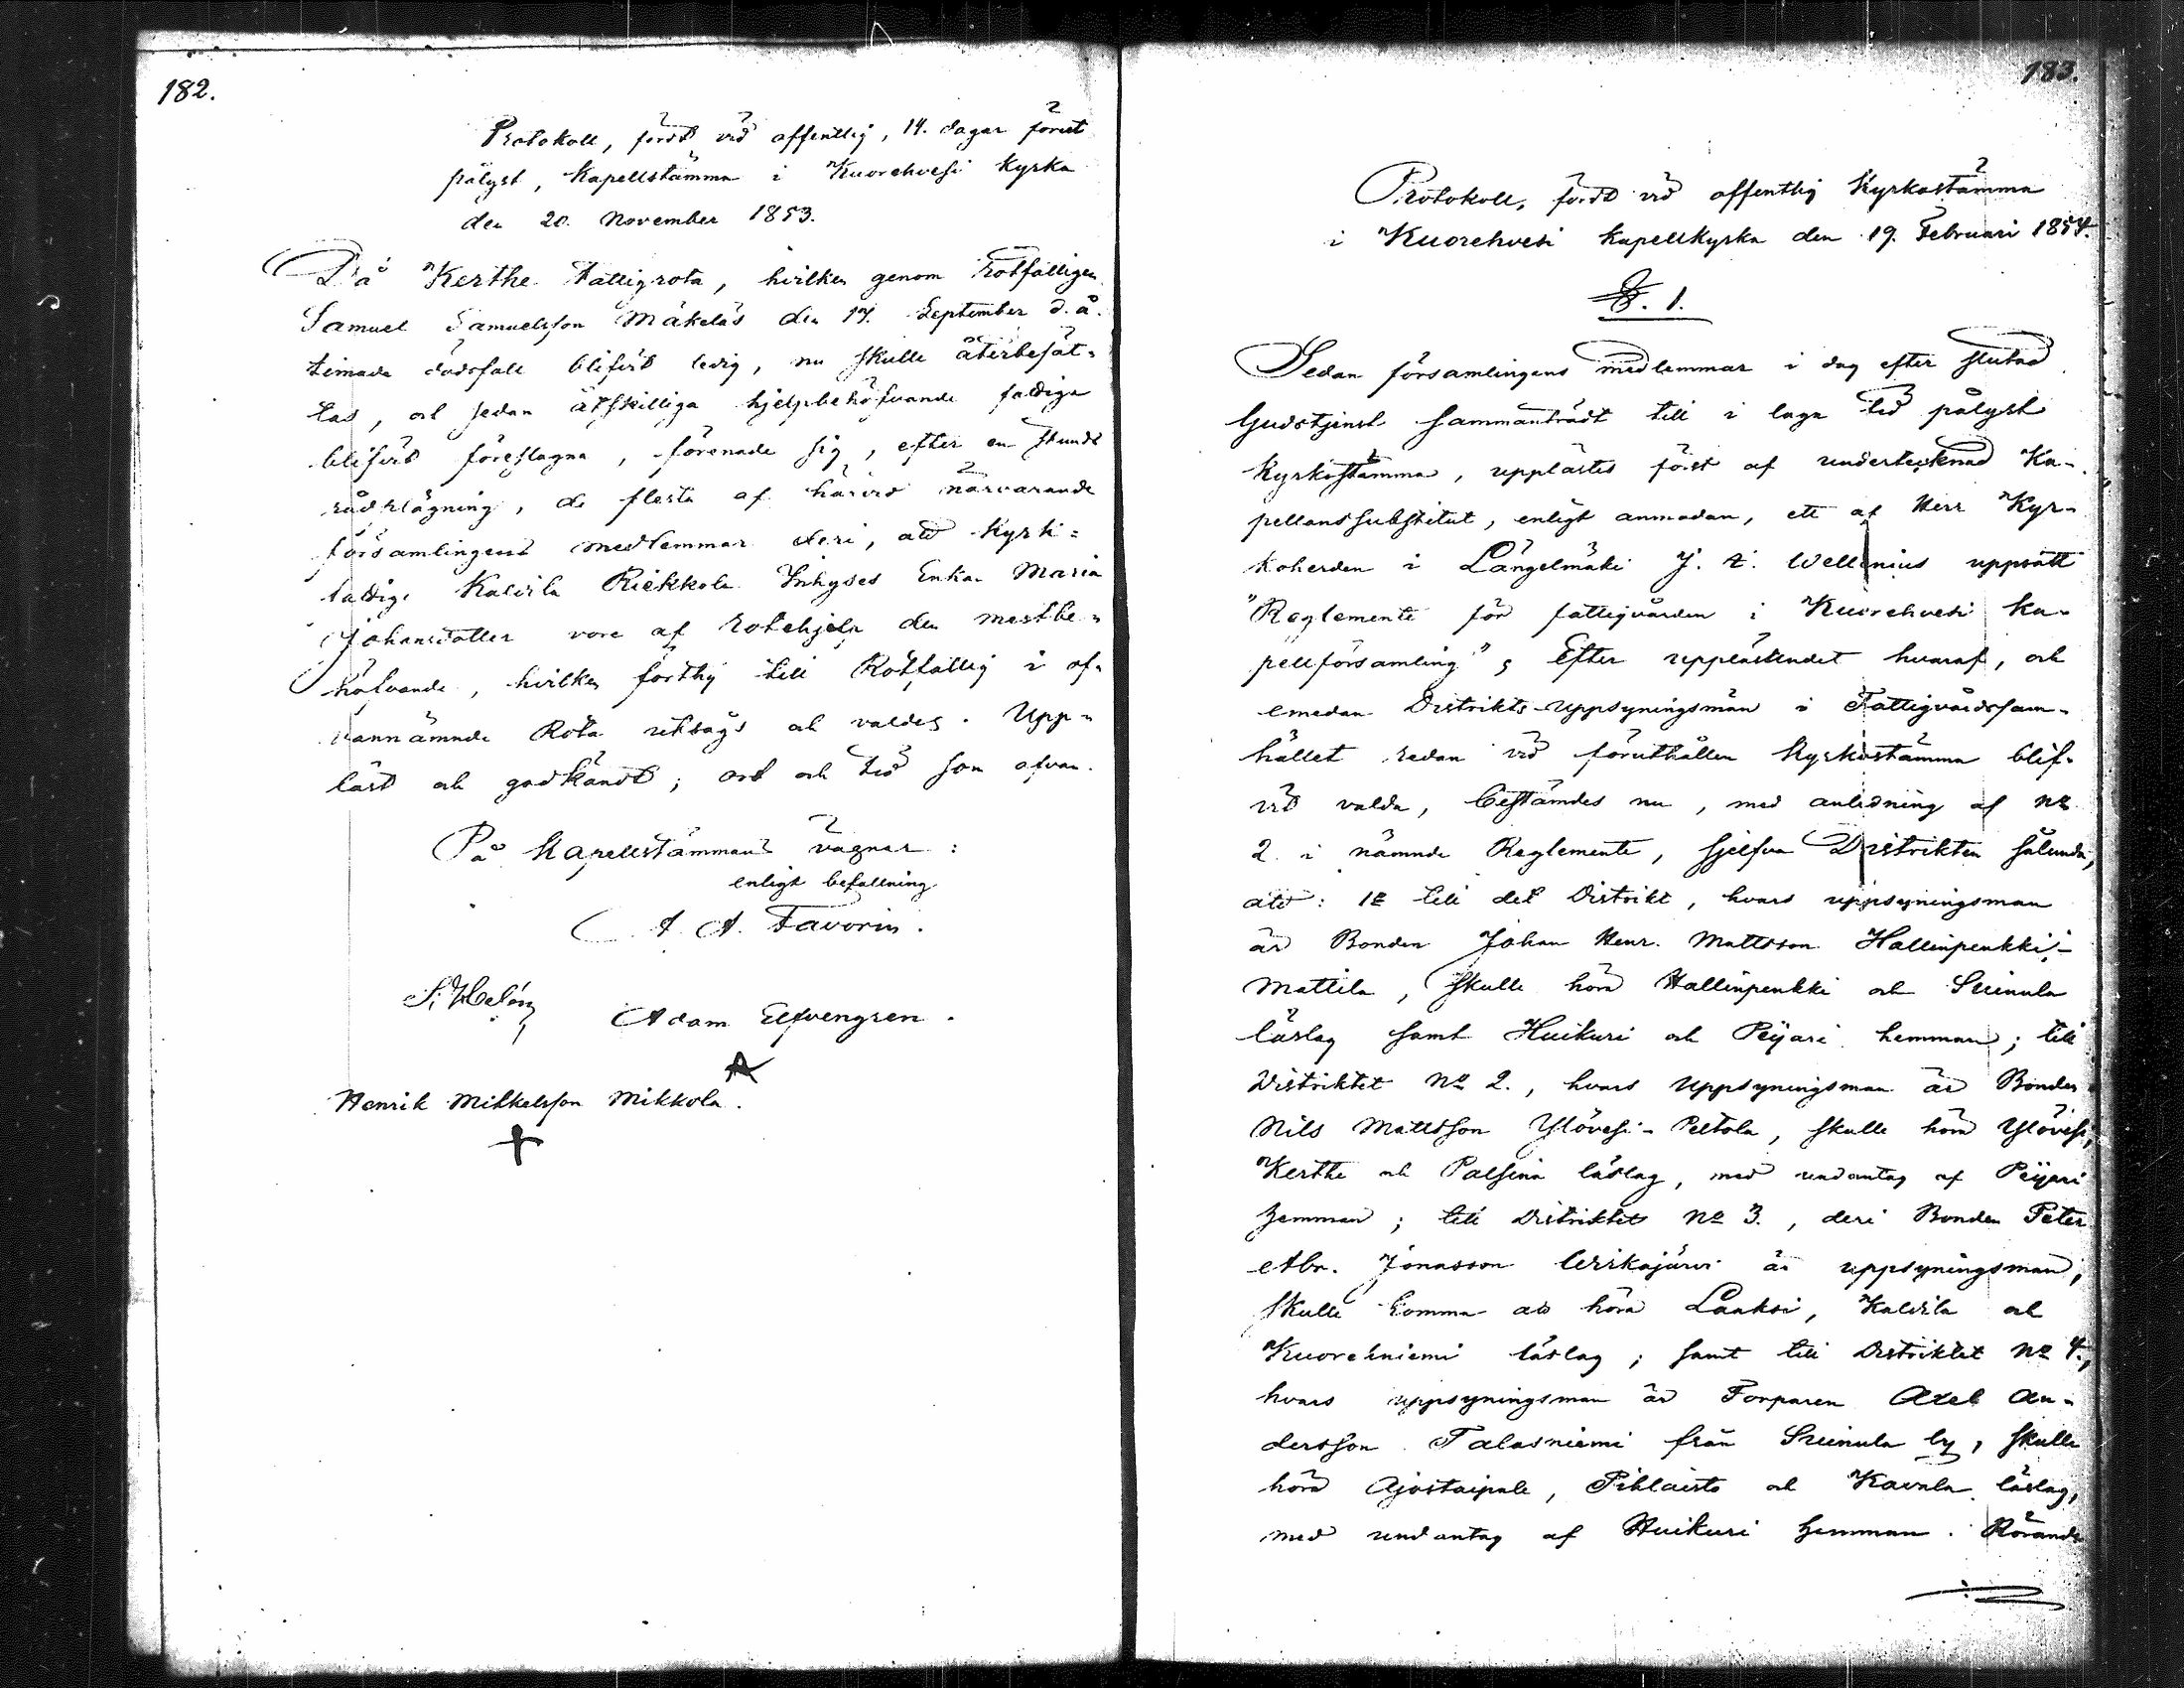 182.
Protokoll, fördt vid offentlig, 14. dagar förut
pålyst, Kapellstämma i Kuorehvesi Kyrka
den 20. November 1853.
Då Kerthe Fattigrota, hvilken genom Rotfattigen
Samuel Samuelsson Mäkeläs den 17. September d.å.
timade dödsfall blifvit ledig, nu skulle återbesät-
tas, och sedan åtskilliga hjelpbehöfvande fattiga
blifvit föreslagna, förenade sig, efter en stunds
rådplägning, de flesta af härvid närvarande
församlingens medlemmar deri, att Kyrk-
fattiga Kalvila Riekkola Inhyses Enkan Maria
Johansdotter vore af rotehjelp den mestbe-
höfvande, hvilken förthy till Rotfattig i of-
vannämnde Rota uttogs och valdes. Upp-
läst och godkändt; ort och tid som ofvan.
På Kapellstämmans vägnar:
enligt befallning
A. A. Favorin.
S. Helén
Adam Elfvengren.
Henrik Mikkelsson Mikkola.
183.
Protokoll, fördt vid offentlig Kyrkostämma
i Kuorehvesi Kapellkyrka den 19. Februari 1854.
§. 1.
Sedan församlingens medlemmar i dag efter slutad
Gudstjenst sammanträdt till i laga tid pålyst
Kyrkostämma, upplästes först af undertecknad Ka-
pellanssubstitut, enligt anmodan, ett af Herr Kyr-
koherden i Längelmäki J. A. Wellenius uppsatt
"Reglemente för fattigvården i Kuorehvesi Ka-
pellförsamling"; Efter uppläsandet hvaraf, och
emedan Distrikts-uppsyningsmän i Fattigvårdssam-
hället redan vid föruthållen Kyrkostämma blif-
vit valda, bestämdes nu, med anledning af No
2 i nämnde Reglemente, sjelfva Distrikten sålunda,
att: 1o till det Distrikt, hvars uppsyningsman
är Bonden Johan Henr. Mattsson Hallinpenkki-
Mattila, skulle höra Hallinpenkki och Suinula
läslag samt Huikuri och Peijari hemman; till
Distriktet No 2., hvars Uppsyningsman är Bonden
Nils Mattsson Ylövesi-Peltola, skulle höra Ylövesi,
Kerthe och Palsina läslag, med undantag af Peijari
hemman; till Distriktet No 3., deri Bonden Peter
Abr. Jonasson Uskajärvi är uppsyningsman,
skulle komma att höra Laaksi, Kalvila och
Kuorehniemi läslag; samt till Distriktet No 4.,
hvars uppsyningsman är Torparen Axel An-
dersson Talasniemi från Suinula by, skulle
höra Ajostaipale, Pihlaisto och Kavala läslag,
med undantag af Huikuri hemman. Rörande